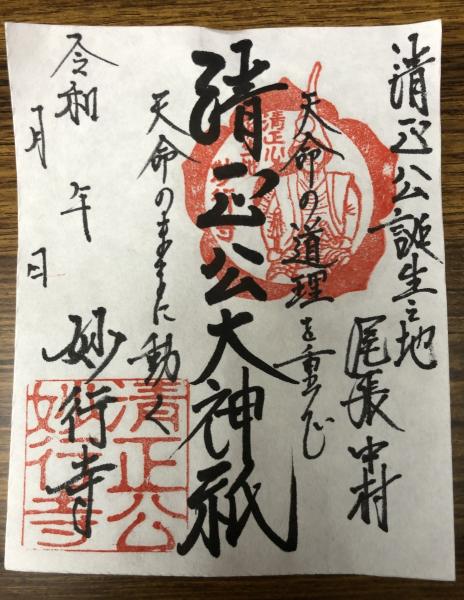 清正公誕生之地
尾張中村
天命の道理を重んじ
清正公大神祇
天命のままに動く
令和 年 月 日
妙行寺
清正公
妙行寺